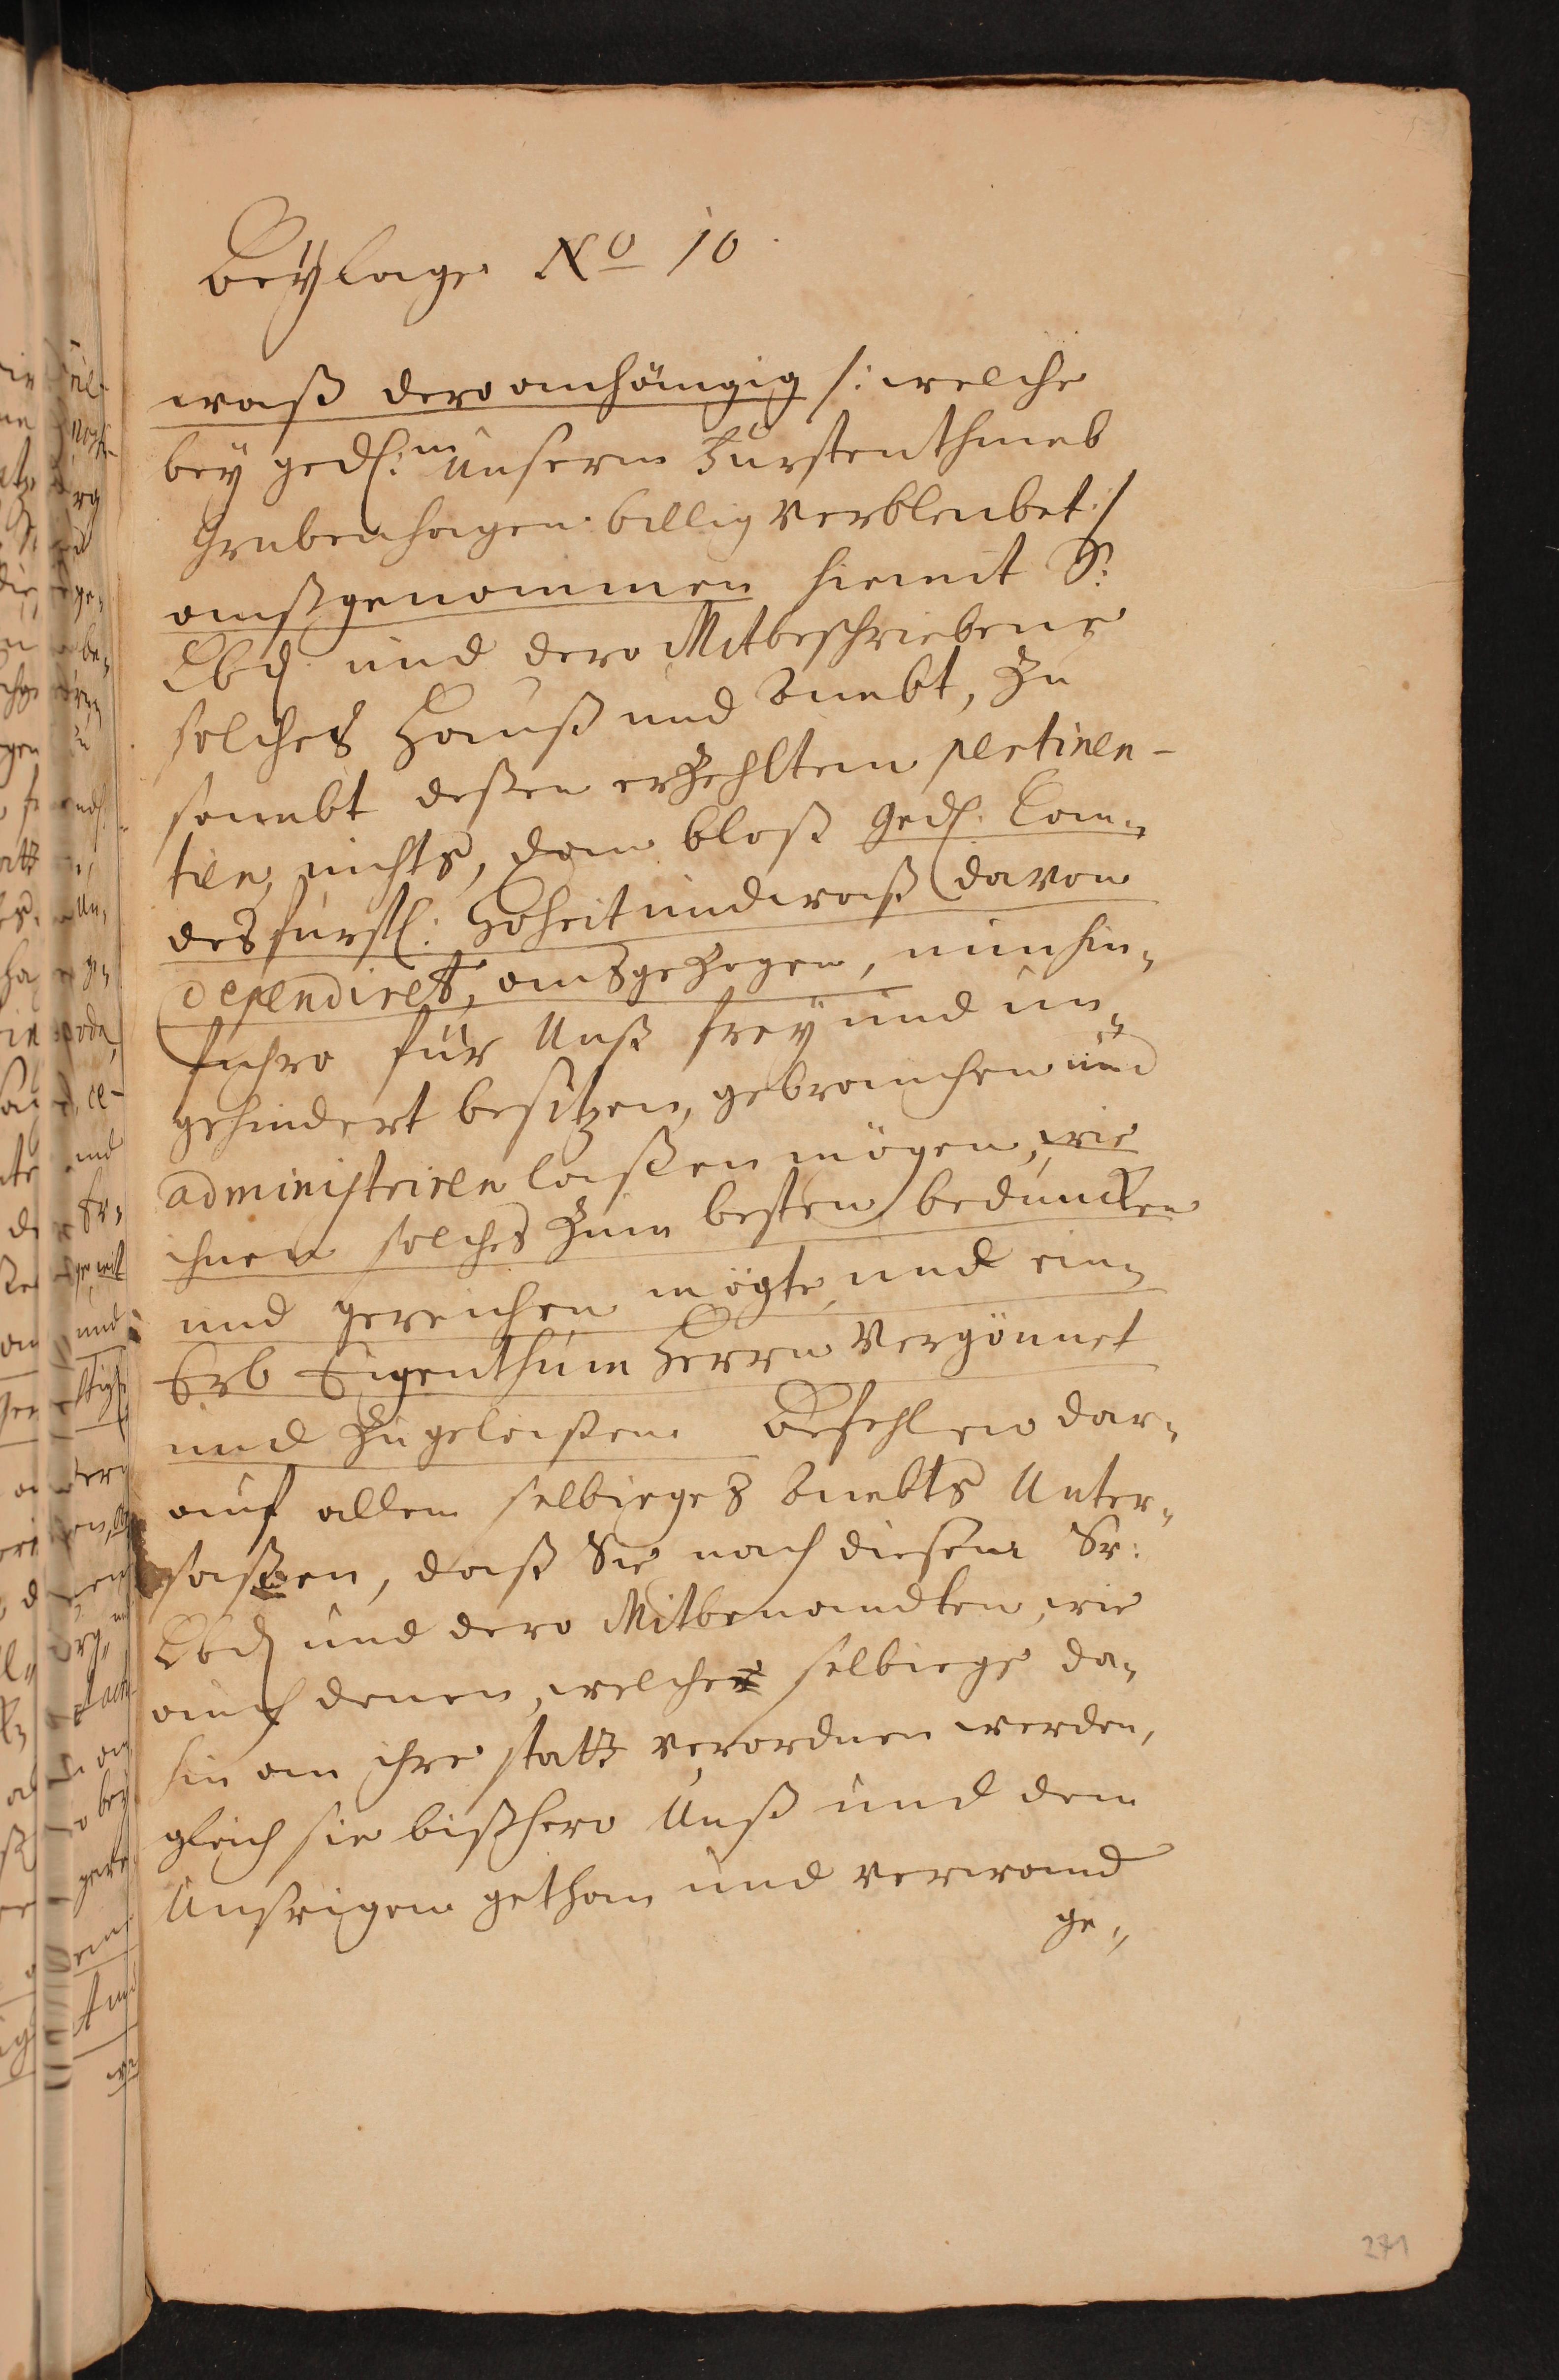 Beÿlage No 10
waß dero anhängig /: welche
beÿ gedh:m Unserm Fürstenthumb
Grubenhagen billig verbleibet :/
außgenommen hiemit Sr:
Lbd und dero Mitbeschriebene
solches Hauß und Ambt, zu
sambt deßen erzehltem pertinen-
tien, nichts, dan bloß gedh. Lan-
desfürstl: Hoheit und waß davon
dependiret, ausgezogen, nunhin-
führo für Unß freÿ und un-
gehindert besitzen, gebrauchen und
administriren laßen mögen, wie
ihnen solches zum besten bedüncken
und gereichen mögte, und ein
Erb Eigenthum Herrn vergönnet
und zugelaßen. Befehlen dar-
auf allen selbieges Ambts Unter-
saßen, daß Sie nach diesem Sr:
Lbd und dero Mitbenandten, wie
auch denen, welche selbiege da-
hin an ihre statt verordnen werden,
gleich sie bißhero Unß und den
Unsrigen gethan und verwand
ge-
271